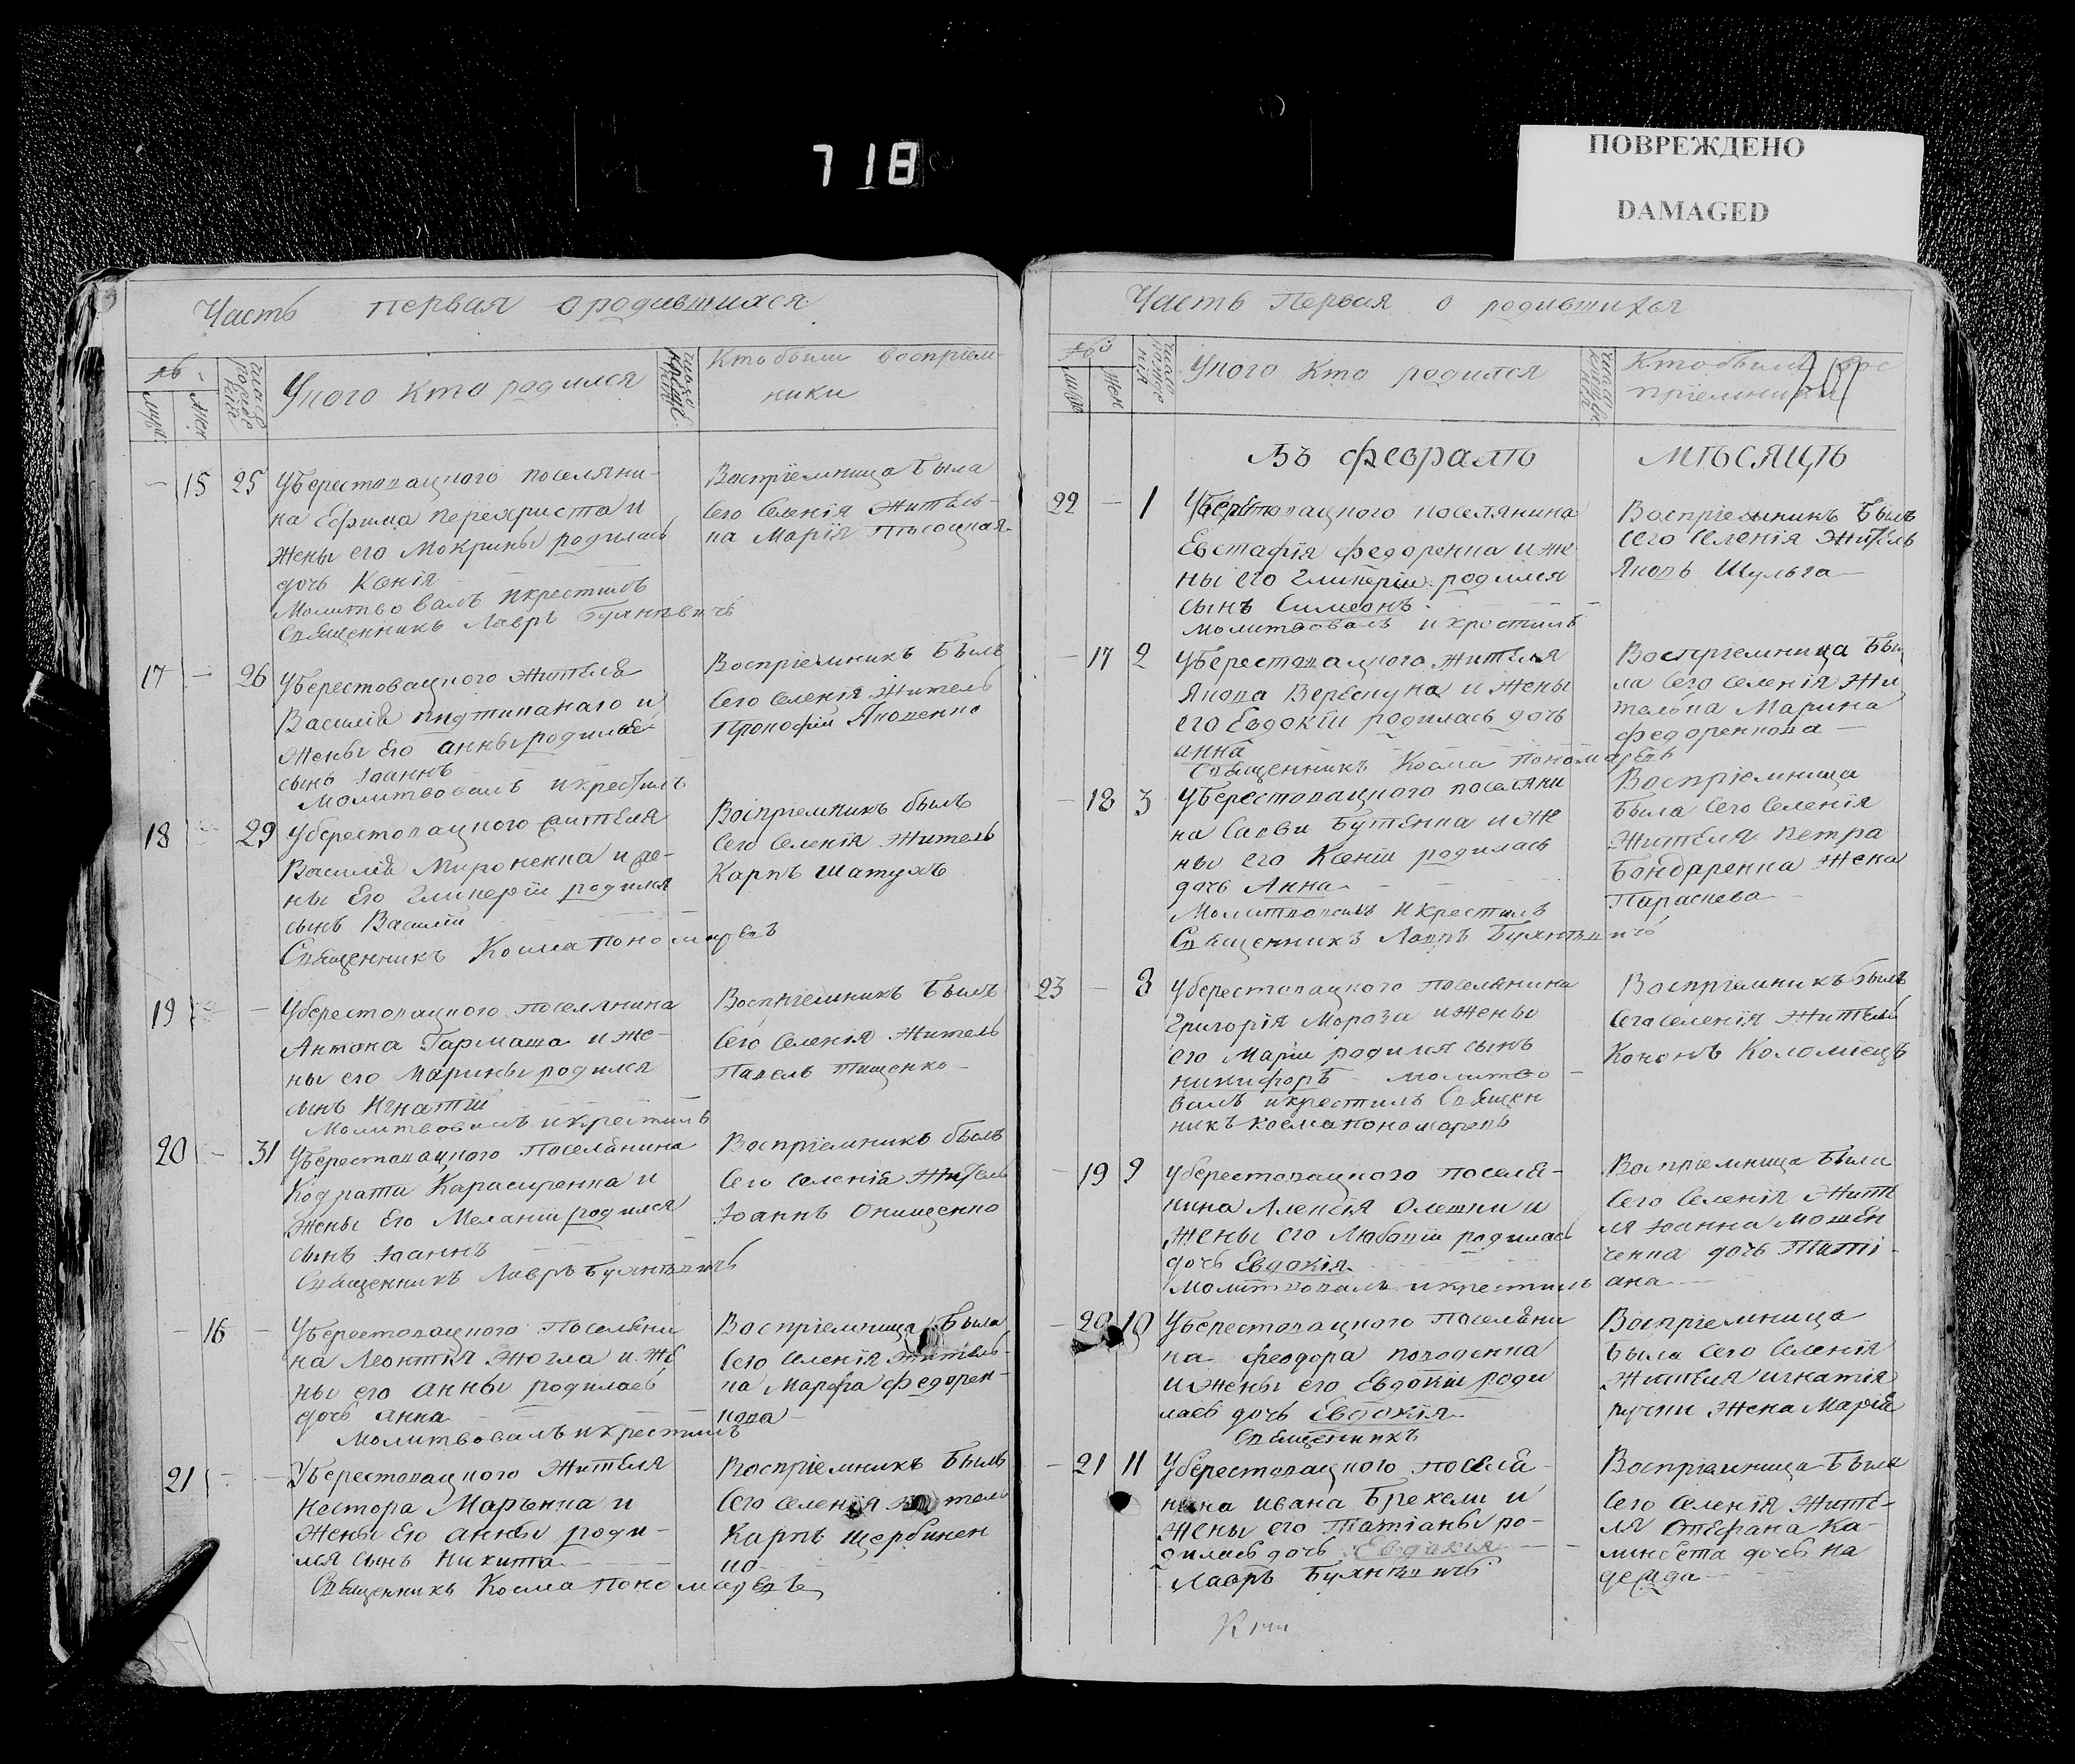 718
ПОВРЕЖДЕНО
DAMAGED
Часть первая о родившихся
Уного кто родился
Кто были воспрiем-
ники
муж.
жен
15 25 Уберестовацкого поселяни-
на Ефима перехриста и
жены его Мокрины родилась
дочь Ксенiя
Молитвовалъ и крестилъ
Священникъ Лавръ Буяновичъ
Воспрiемница была
Сего Селенiя житель-
ка Марiя Пѣсоцкая
17 - 26 Уберестовацкого жителя
Василiя
жены Его анны родился
сынъ Iоаннъ
Молитвовалъ и крестилъ
Воспрiемникъ былъ
Сего Селенiя житель
Прокофiй Яковенко
18 29 Уберестовацкого жителя
Василiя Мироненка и же-
ны Его Гликерiи родился
сынъ Василiй
Священникъ Косма Пономаревъ
Воспрiемникъ былъ
Сего Селенiя житель
Карпъ Шатухъ
19 - Уберестовацкого поселянина
Антона Гармаша и же-
ны его Марины родился
сынъ Игнатiй
Молитвовалъ и крестилъ
Воспрiемникъ былъ
Сего Селенiя житель
Павелъ Тищенко
20 - 31 Уберестовацкого Поселянина
Кодрата Карасиренка и
жены Его Меланiи родился
сынъ Iоаннъ
Священникъ Лавръ Буяновичъ
Воспрiемникъ былъ
Сего Селенiя житель
Iоаннъ Онищенко
- 16 - Уберестовацкого Поселяни
на Леонтiя Жогла и же
ны его анны родилась
дочь анна
Молитвовалъ и крестилъ
Воспрiемница была
Сего Селенiя житель-
ка Марфа Федорен-
кова
21 - - Уберестовацкого жителя
Нестора Марънка и
жены Его анны роди-
лся сынъ Никита
Священникъ Косма Пономаревъ
Воспрiемникъ былъ
Сего Селенiя житель
Карпъ Щербинен
ко
Часть Первая о родившихся
муж
жен
Уного кто родился
Кто были вос
прiемники
Въ февралѣ мѣсяцѣ
22 - 1 Уберестовацкого поселянина
Евстафiя Федоренка и же
ны его Гликерiи родился
сынъ Симеонъ
Молитвовалъ и крестилъ
Воспрiемникъ былъ
Сего Селенiя житель
Яковъ Шульга
- 17 2 Уберестовацкого жителя
Якова Вервекуна и жены
его Евдокiи родилась дочь
анна
Священникъ Косма Пономаревъ
Воспрiемница бы
ла Сего Селенiя жи
телька Марина
Федоренкова
- 18 3 Уберестовацкого поселяни
на Саввы Бутенка и же
ны его Ксенiи родилась
дочь Анна
Молитвовалъ и крестилъ
Священникъ Лавръ Буяновичъ
Воспрiемница
была Сего Селенiя
жителя Петра
Бондаренка жена
Параскева
23 - 8 Уберестовацкого поселянина
Григорiя Мороза и жены
его Марiи родился сынъ
Никифоръ Молитво
валъ и крестилъ Священ
никъ Косма Пономаревъ
Воспрiемникъ былъ
Сего Селенiя житель
Кононъ Коломiецъ
- 19 9 Уберестовацкого поселя-
нина Алексiя Олешки и
жены его Любовiи родилась
дочь Евдокiя
Молитвовалъ и крестилъ
Воспрiемница была
Сего Селенiя жите
ля Iоанна Мошен
ченка дочь Татi-
ана
- 20 10 Уберестовацкого Поселяни
на Феодора
и жены его Евдокiи роди
лась дочь Евдокiя
Священникъ
Воспрiемница
была Сего Селенiя
жителя игнатiя
жена Марiя
- 21 11 Уберестовацкого поселя-
нина ивана Брекели и
жены его Татiаны ро-
дилась дочь Евдокiя
Лавръ Буяновичъ
Воспрiемница была
Сего Селенiя жите-
ля Стефана Ка-
дочь На
дежда